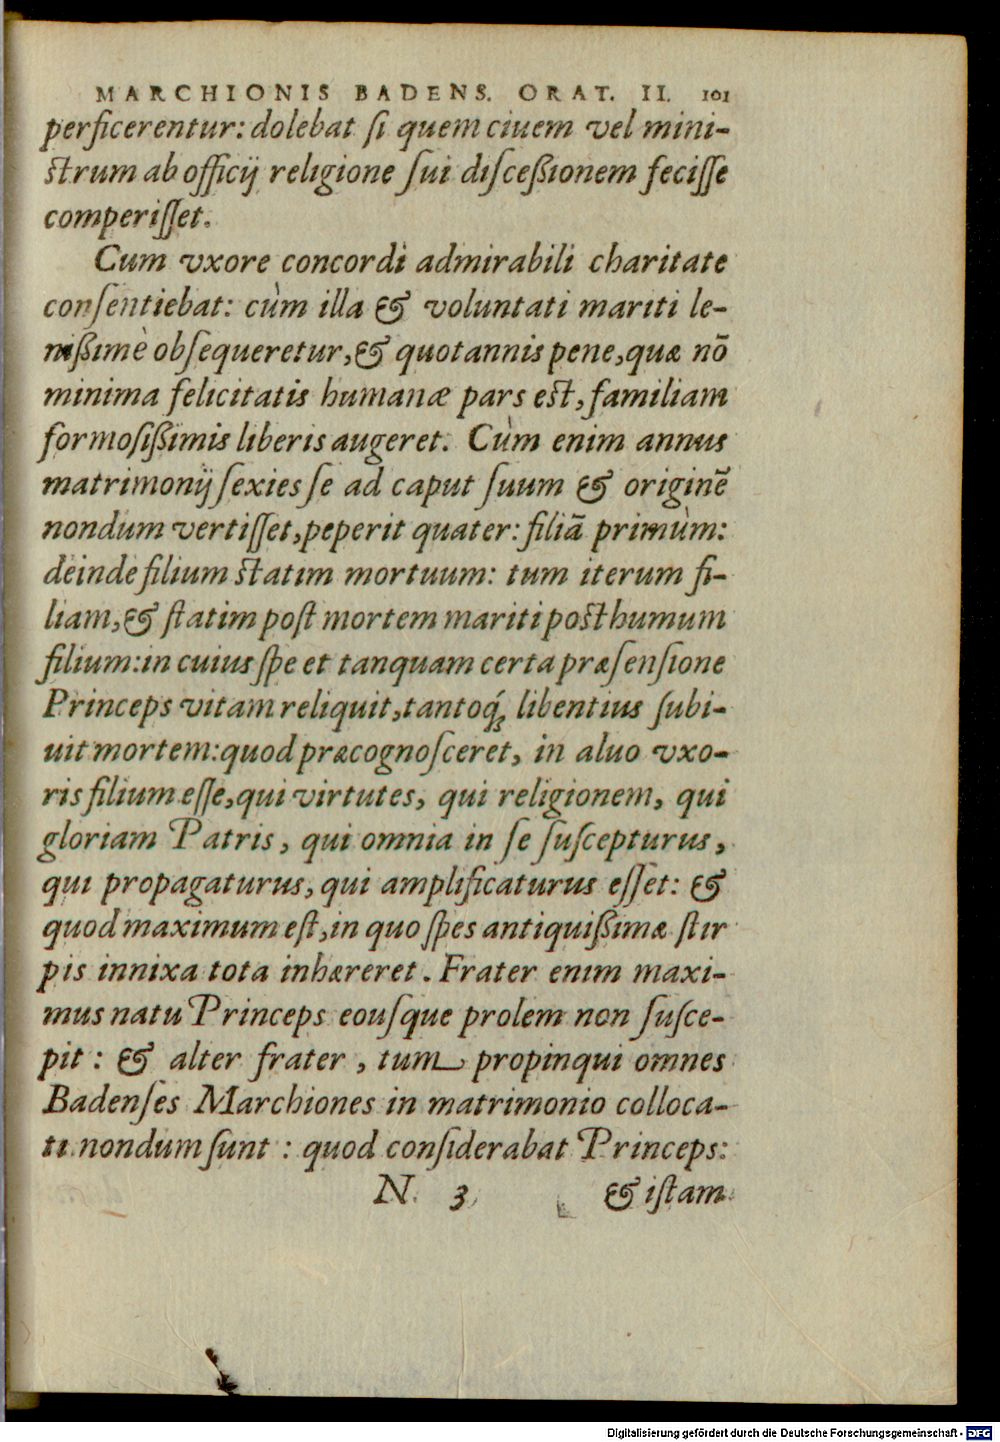 MARCHIONIS BADENS. ORAT. II. 101
perficerentur: dolebat ſi quem ciuem vel mini-
ſtrum ab officij religione ſui diſceßionem feciſſe
comperiſſet.
Cum vxore concordi admirabili charitate
conſentiebat: cùm illa & voluntati mariti le-
nißimè obſequeretur, & quotannis pene, quæ nō
minima felicitatis humanæ pars eſt, familiam
formoſißimis liberis augeret. Cùm enim annus
matrimonij ſexies ſe ad caput ſuum & originē
nondum vertiſſet, peperit quater: filiā primùm:
deinde filium ſtatim mortuum: tum iterum fi-
liam, & ſtatim poſt mortem mariti poſthumum
filium: in cuius ſpe et tanquam certa præſenſione
Princeps vitam reliquit, tantoq́ꝫ libentius ſubi-
uit mortem: quod præcognoſceret, in aluo vxo-
ris filium eſſe, qui virtutes, qui religionem, qui
gloriam Patris, qui omnia in ſe ſuſcepturus,
qui propagaturus, qui amplificaturus eſſet: &
quod maximum eſt, in quo ſpes antiquißimæ ſtir
pis innixa tota inhæreret. Frater enim maxi-
mus natu Princeps eouſque prolem non ſuſce-
pit: & alter frater, tum propinqui omnes
Badenſes Marchiones in matrimonio colloca-
ti nondum ſunt: quod conſiderabat Princeps:
N 3 & iſtam
Digitalisierung gefördert durch die Deutsche Forschungsgemeinschaft - DFG